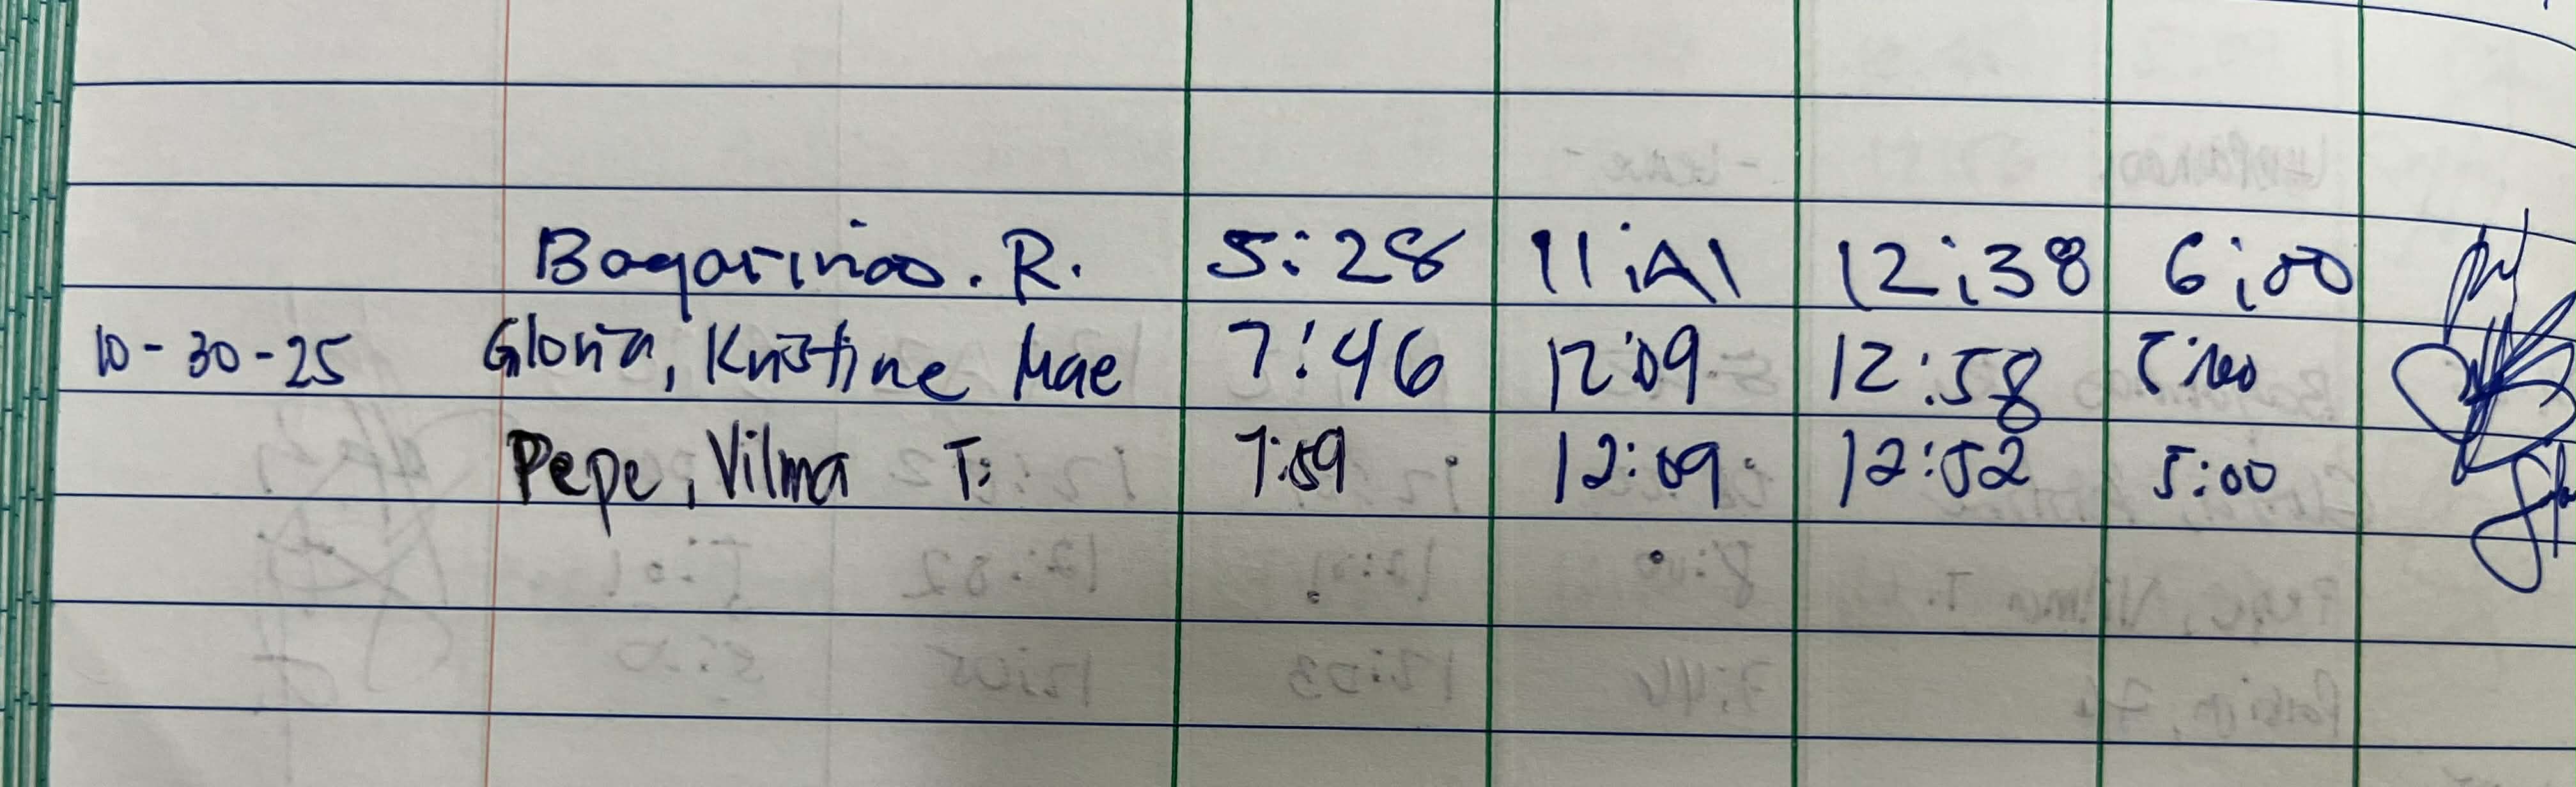 Bagarinao. R. 5:28 11:41 12:38 6:00
10-30-25 Gloria, Kristine Mae 7:46 12:09 12:58 5:00
Pepe, Vilma T. 7:59 12:09 12:52 5:00